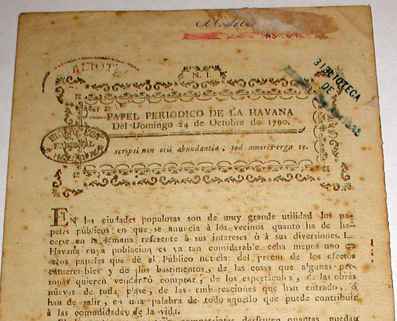 N. I.
PAPEL PERIODICO DE LA HAVANA
Del Domingo 24 de Octubre de 1790.
scripsi non otii abundantia, sed amoris erga te.
BIBLIOTECA
DE
EN las ciudades populosas son de muy grande utilidad los pa-
peles públicos en que se anuncia á los vecinos quanto ha de ha-
cerse en la semana referente á sus intereses ó á sus diversiones. La
Havana cuya poblacion es ya tan considerable echa menos uno de
estos papeles que dé al Público noticia del precio de los efectos
comerciables y de los bastimentos, de las cosas que algunas per-
sonas quieren vender ó comprar, de los espectáculos, de las obras
nuevas de toda clase, de las embarcaciones que han entrado, ó
han de salir, en una palabra de todo aquello que puede contribuir
á las comodidades de la vida.